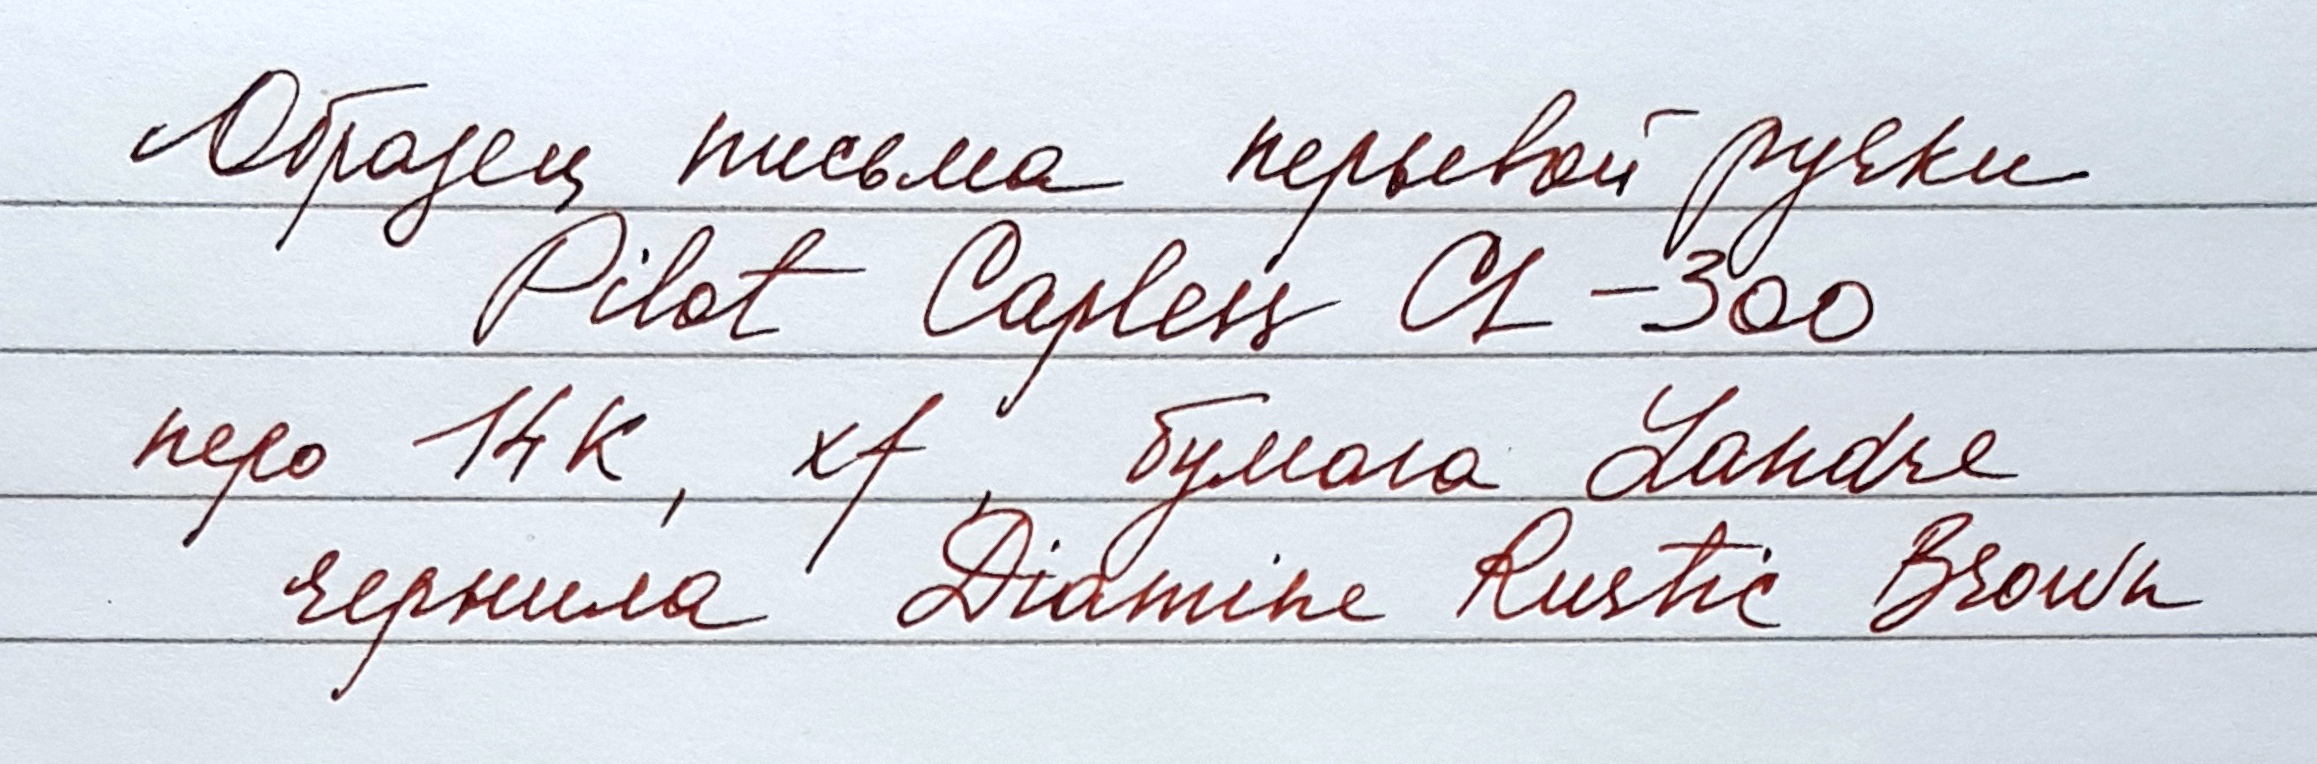 Образец письма перьевой ручки
Pilot Capless CL-300
перо 14К, xf, бумага Landre
чернила Diamine Rustic Brown